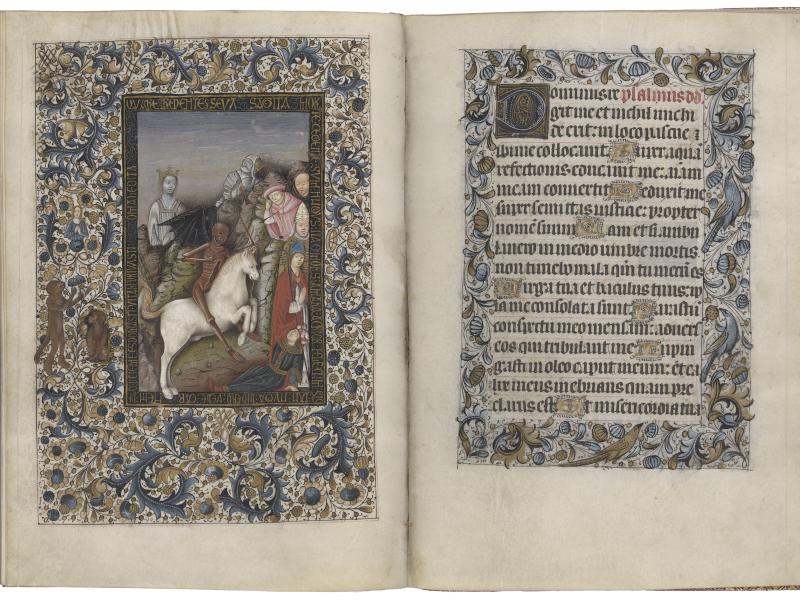 SEVA SAGITA
Dominus re psalmus dd.
git me et nichil michi
deerit: in loco pascue
ibi me collocavit. Super aqua
refectionis educavit me: aiam
meam convertit Deduxit me
super semitas iusticie: propter
nome suum. Nam et si ambu
lavero in medio umbre mortis
non timebo mala: qm tu mecu es
Virga tua et baculus tuus: ip
sa me consolata sunt Parasti i
conspectu meo mensam: advers
eos qui tribulant me Impin
guasti in oleo caput meum: et ca
lix meus inebrians quam pre
clarus est Et misericordia tua